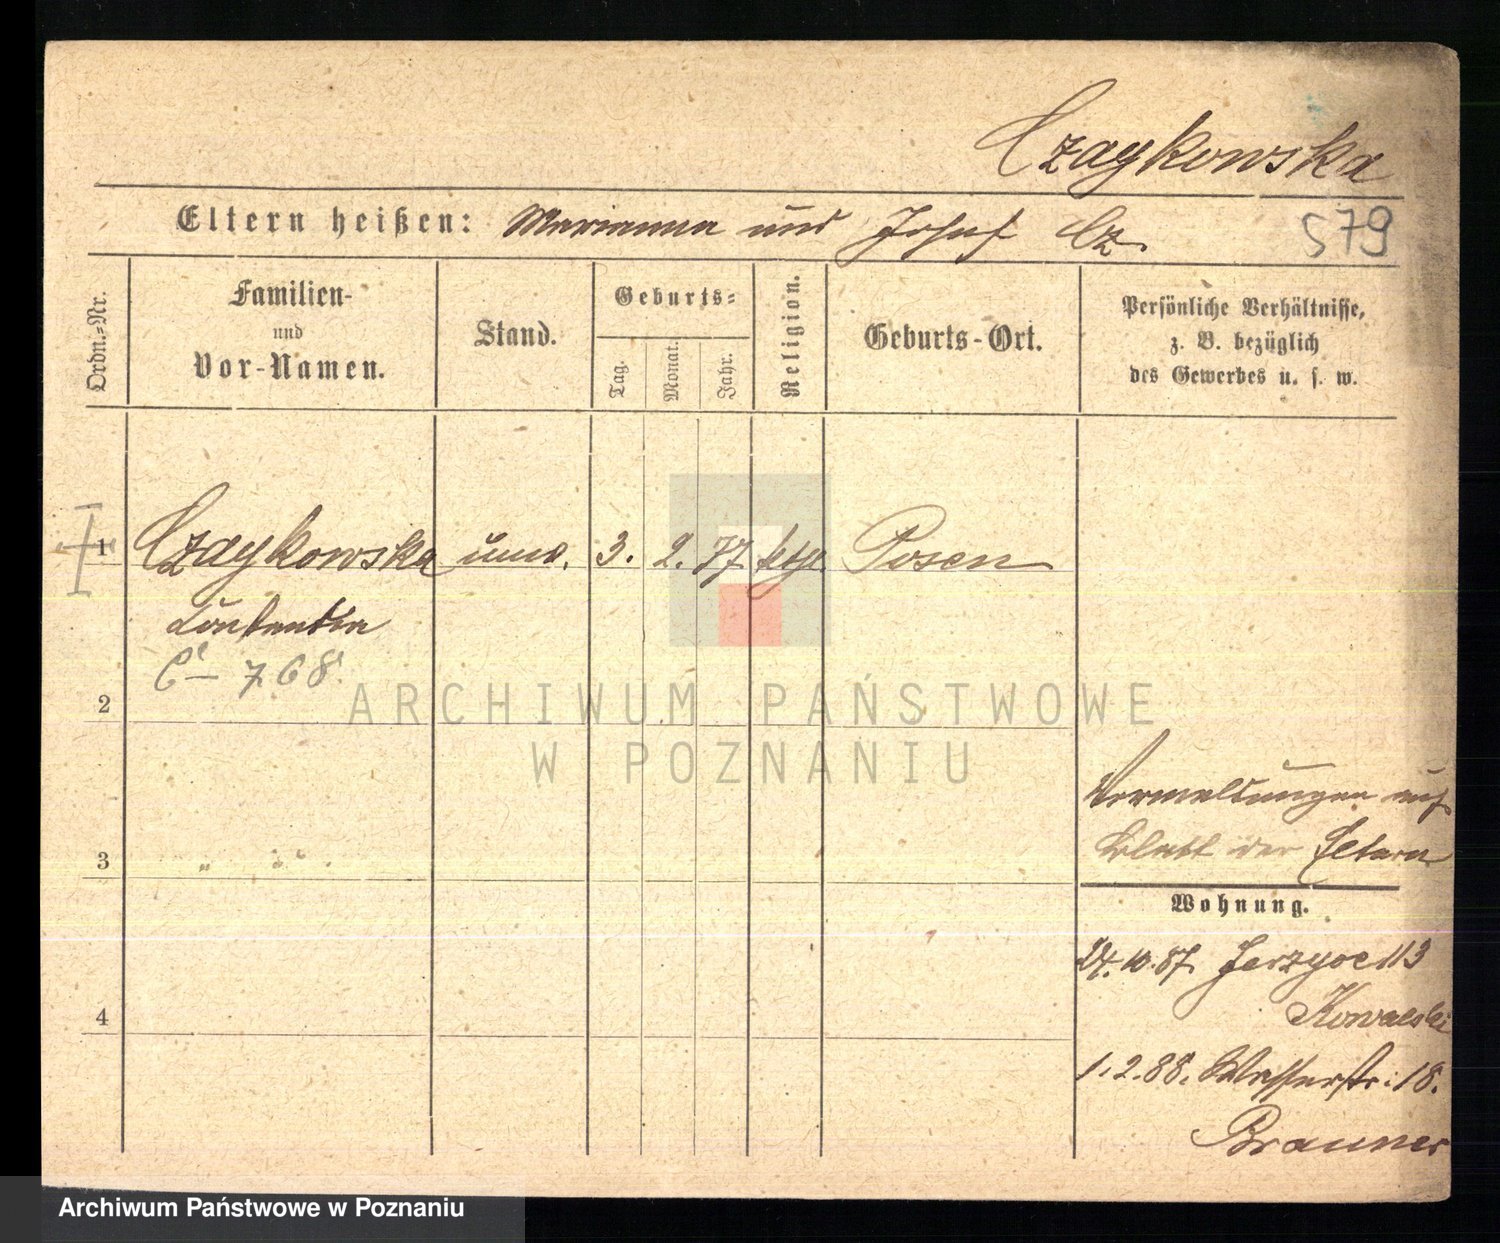 Czaykowska
Eltern heißen: Marianna und Josef Cz.
579
Ordn.-Nr.
Familien-
und
Vor-Namen.
Stand.
Geburts-
Tag.
Monat.
Jahr.
Religion.
Geburts-Ort.
Persönliche Verhältnisse,
z. B. bezüglich
des Gewerbes u. s. w.
1 Czaykowska unv. 3. 2. 77 ktyl. Posen
C - 768
2
ARCHIWUM PAŃSTWOWE
W POZNANIU
Vormeldungen auf
Blatt der Eltern
3
Wohnung.
24.10.87. Jerzyce 113
Kowalski
4
1.2.88. Wasserstr. 18.
Brauner
Archiwum Państwowe w Poznaniu